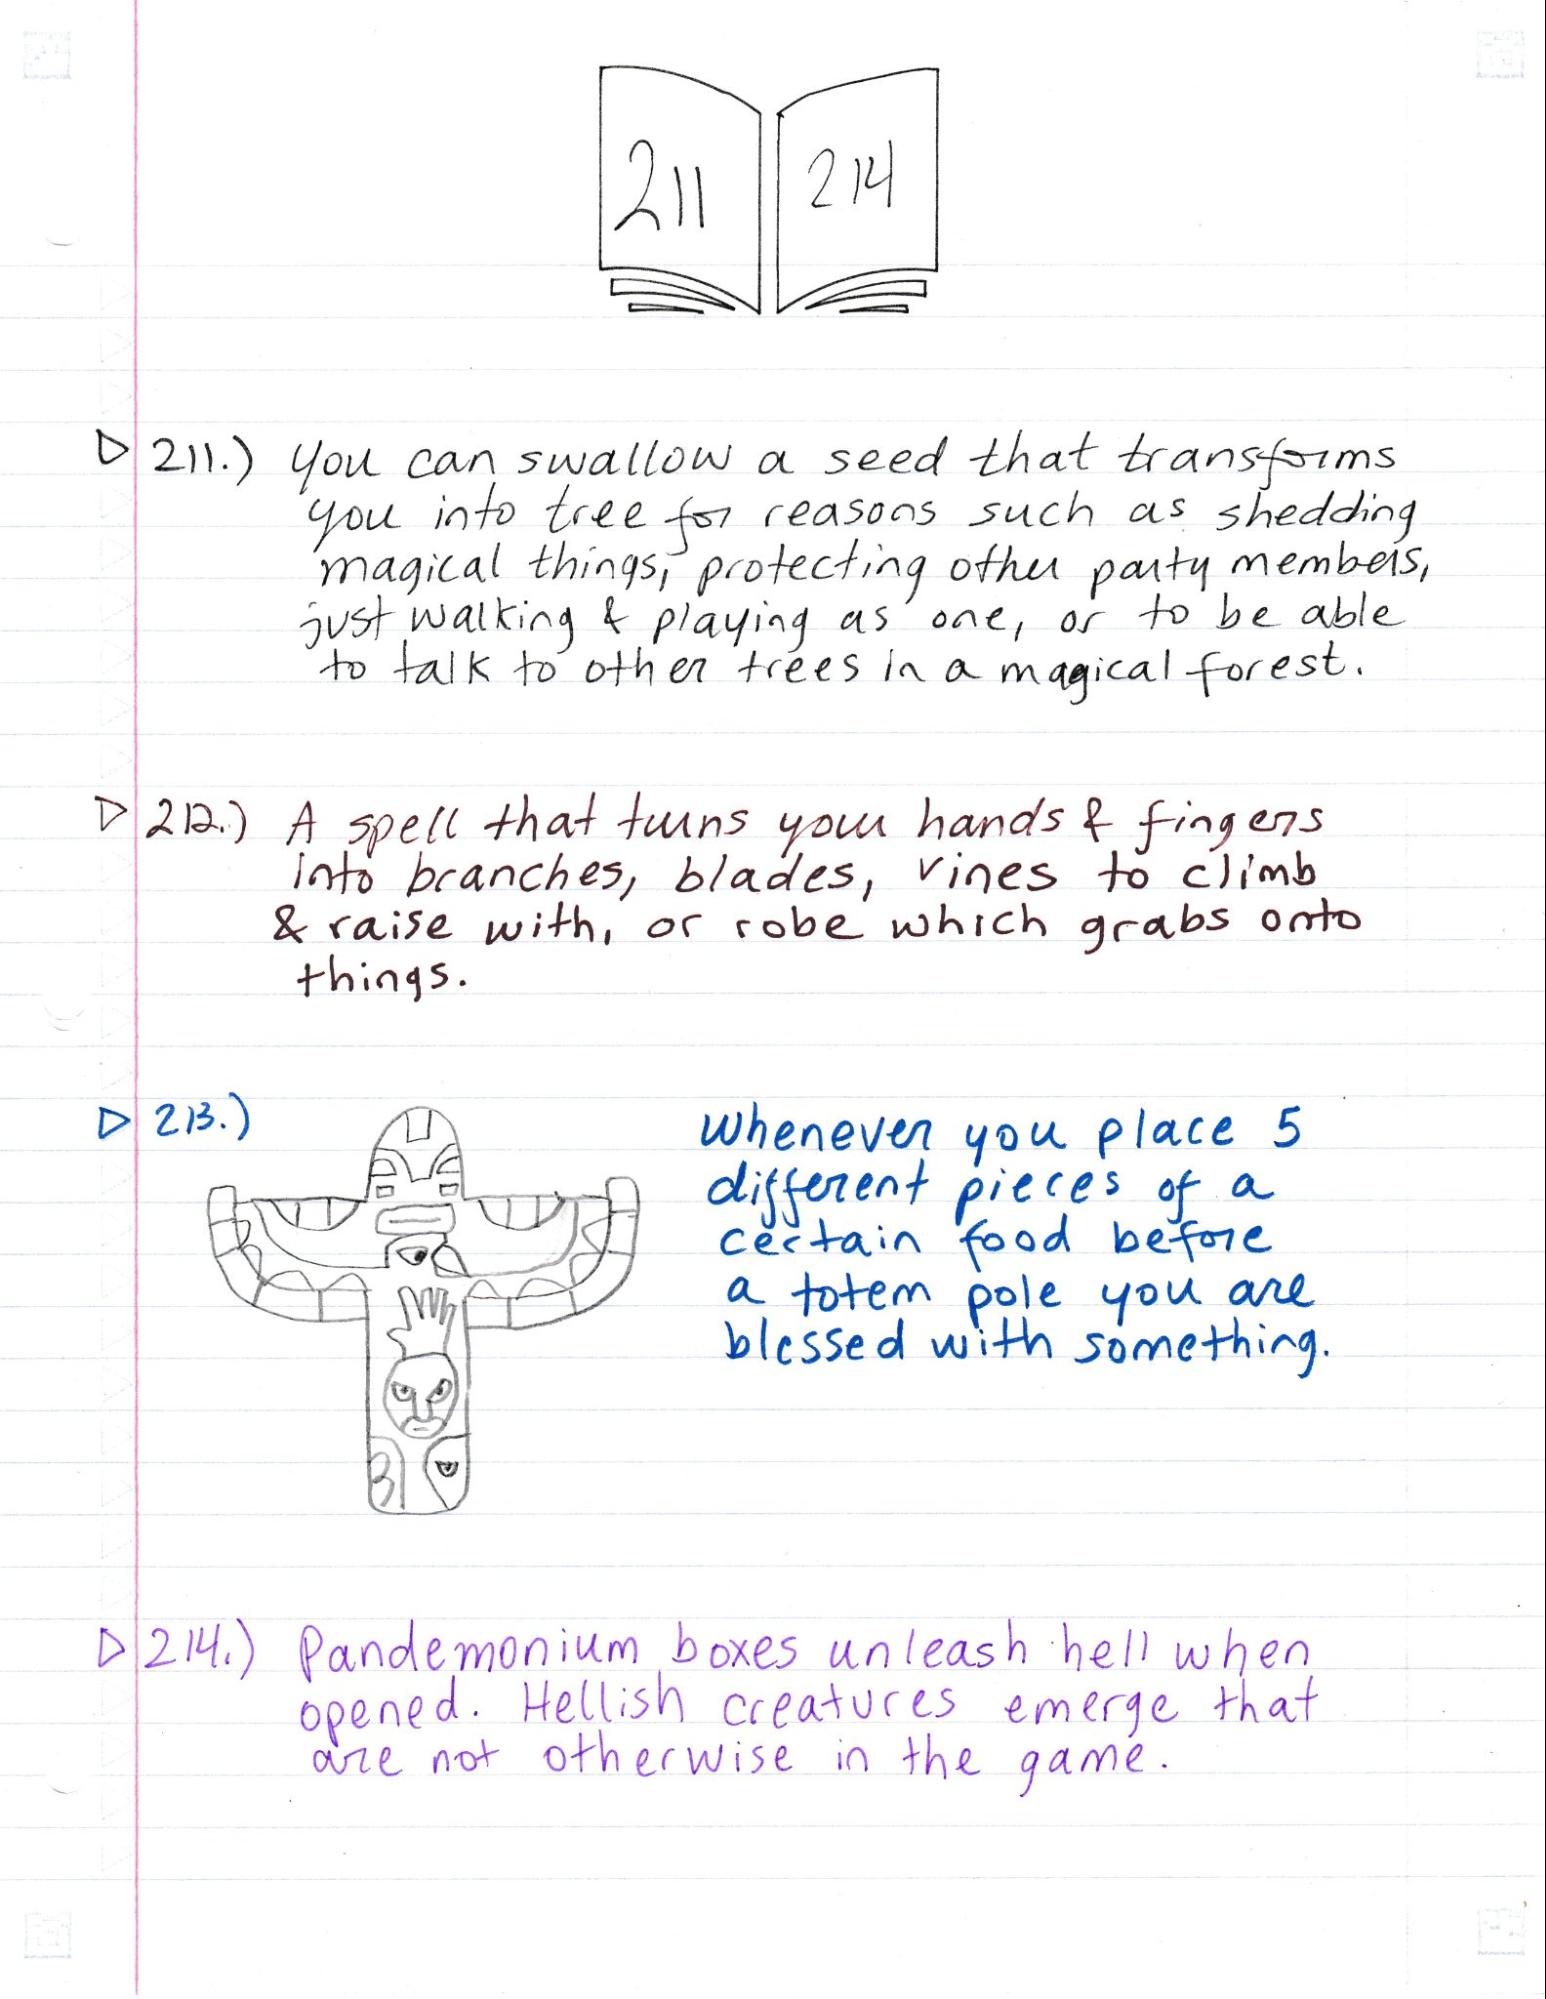 211
214
211.) You can swallow a seed that transforms
you into tree for reasons such as shedding
magical things, protecting other party members,
just walking & playing as one, or to be able
to talk to other trees in a magical forest.
212.) A spell that turns your hands & fingers
into branches, blades, vines to climb
& raise with, or robe which grabs onto
things.
213.)
Whenever you place 5
different pieces of a
certain food before
a totem pole you are
blessed with something.
214.) Pandemonium boxes unleash hell when
opened. Hellish creatures emerge that
are not otherwise in the game.